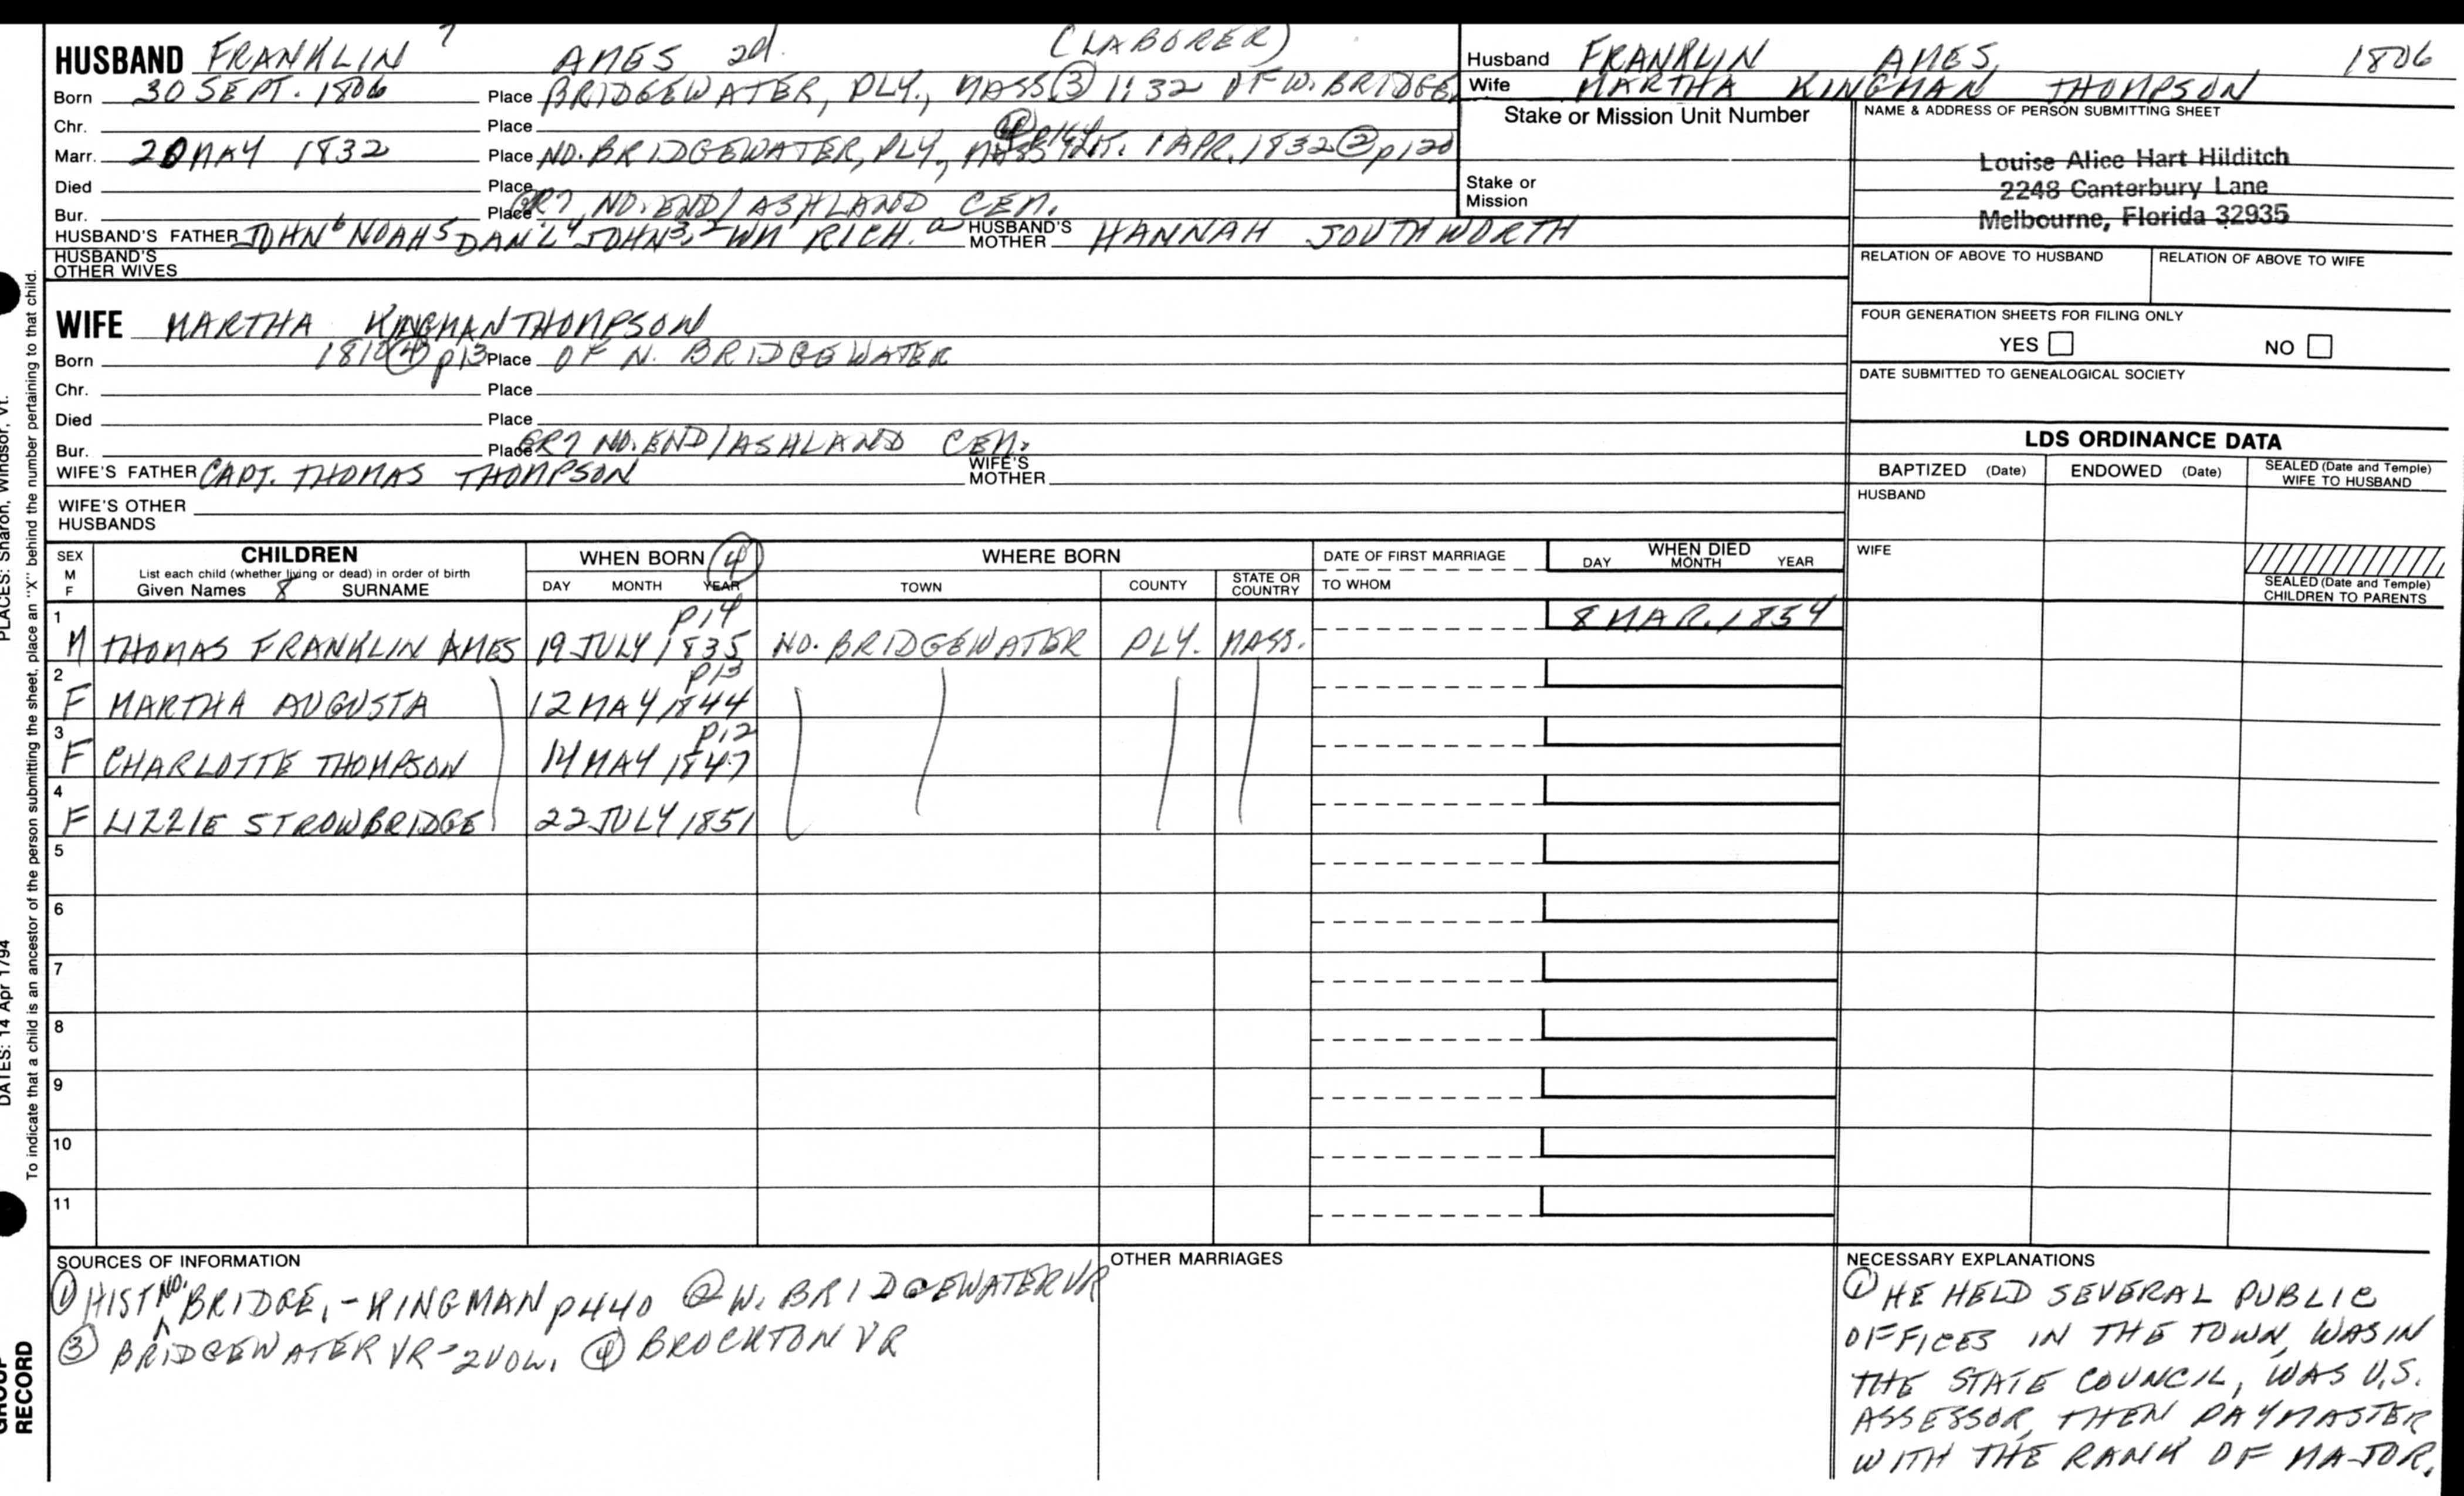 HUSBAND FRANKLIN 7 AMES 2d. (LABORER)
Born 30 SEPT. 1806 Place BRIDGEWATER, PLY., MASS ③ 1:32 OF W. BRIDGE
Chr. Place
Marr. 20 MAY 1832 Place NO. BRIDGEWATER, PLY., MASS INT. 1 APR. 1832 ② p120
Died Place
Bur. Place GR7, NO. END/ASHLAND CEM.
HUSBAND'S FATHER JOHN 6 NOAH 5 DAN'L 4 JOHN 3, 2 WM 1 RICH. a HUSBAND'S MOTHER HANNAH SOUTHWORTH
HUSBAND'S OTHER WIVES
Husband FRANKLIN AMES, 1806
Wife MARTHA KINGMAN THOMPSON
Stake or Mission Unit Number
Stake or
Mission
NAME & ADDRESS OF PERSON SUBMITTING SHEET
Louise Alice Hart Hilditch
2248 Canterbury Lane
Melbourne, Florida 32935
RELATION OF ABOVE TO HUSBAND RELATION OF ABOVE TO WIFE
FOUR GENERATION SHEETS FOR FILING ONLY
YES NO
DATE SUBMITTED TO GENEALOGICAL SOCIETY
WIFE MARTHA KINGMAN THOMPSON
Born 1812 ④ p13 Place OF N. BRIDGEWATER
Chr. Place
Died Place
Bur. Place GR7 NO. END/ASHLAND CEM.
WIFE'S FATHER CAPT. THOMAS THOMPSON WIFE'S MOTHER
WIFE'S OTHER
HUSBANDS
LDS ORDINANCE DATA
BAPTIZED (Date) ENDOWED (Date) SEALED (Date and Temple) WIFE TO HUSBAND
HUSBAND
WIFE
SEALED (Date and Temple)
CHILDREN TO PARENTS
SEX CHILDREN WHEN BORN ④ WHERE BORN DATE OF FIRST MARRIAGE WHEN DIED
M List each child (whether living or dead) in order of birth DAY MONTH YEAR TOWN COUNTY STATE OR COUNTRY TO WHOM DAY MONTH YEAR
F Given Names 8 SURNAME
1 p14 8 MAR. 1854
M THOMAS FRANKLIN AMES 19 JULY 1835 NO. BRIDGEWATER PLY. MASS.
2 p13
F MARTHA AUGUSTA 12 MAY 1844
3 p12
F CHARLOTTE THOMPSON 14 MAY 1847
4
F LIZZIE STROWBRIDGE 22 JULY 1851
5
6
7
8
9
10
11
SOURCES OF INFORMATION
① HIST NO. BRIDGE, - KINGMAN p440 ② W. BRIDGEWATER VR
③ BRIDGEWATER VR - 2 VOL. ④ BROCKTON VR
OTHER MARRIAGES
NECESSARY EXPLANATIONS
① HE HELD SEVERAL PUBLIC
OFFICES IN THE TOWN, WAS IN
THE STATE COUNCIL, WAS U.S.
ASSESSOR, THEN PAYMASTER
WITH THE RANK OF MAJOR.
To indicate that a child is an ancestor of the person submitting the sheet, place an "X" behind the number pertaining to that child.
PLACES: Sharon, Windsor, Vt.
DATES: 14 Apr 1794
GROUP
RECORD